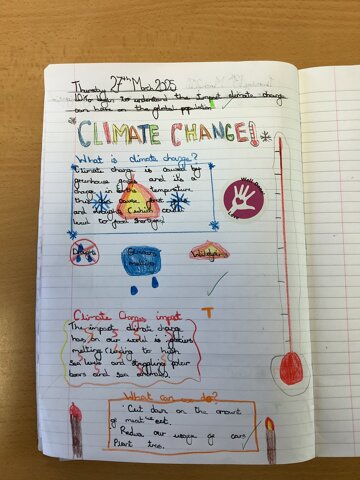 Thursday 27th March 2025
LO: To begin to understand the impact climate change
can have on the global population.
CLIMATE CHANGE!
What is climate change?
Climate change is caused by
greenhouse gases and it's a
change in the temperature,
this can cause
and droughts (which could
lead to food shortages)
Droughts
Glaciers
melting
Wildfires
T
Climate Changes impact
The impact climate change
has on our world is glaciers
melting (linking to high
sea levels and struggling polar
bears and sea animals).
What can we do?
Cut down on the amount
of meat we eat.
Reduce our usage of cars
Plant trees.